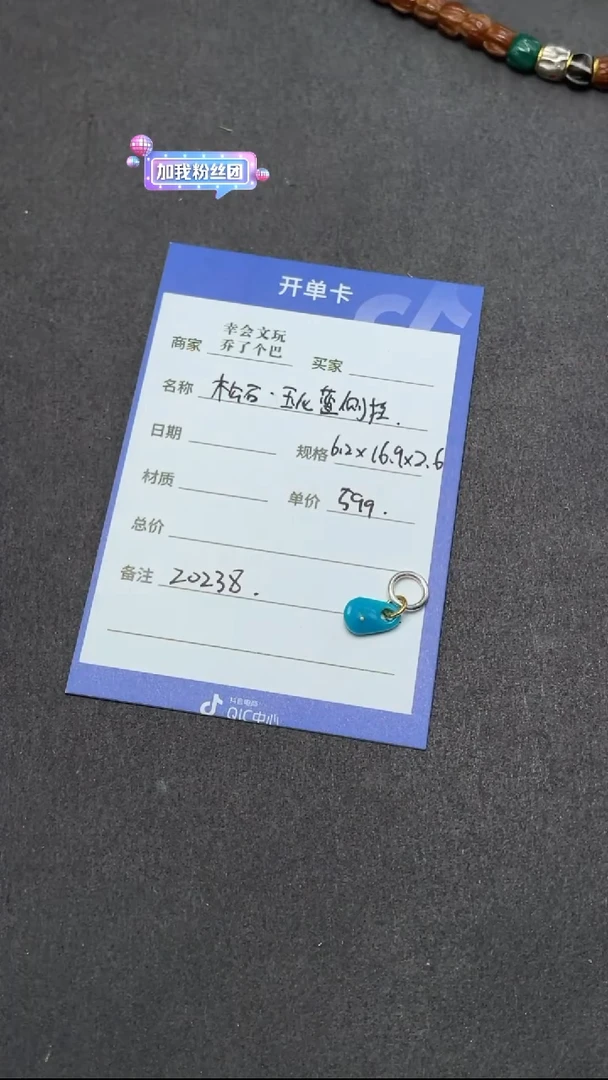 加我粉丝团
开单卡
幸会文玩
商家 乔了个巴 买家
名称 松石·玉化蓝侧挂.
日期 规格 6.2×16.9×2.6
材质 单价 599.
总价
备注 20238.
抖音电商
QIC中心